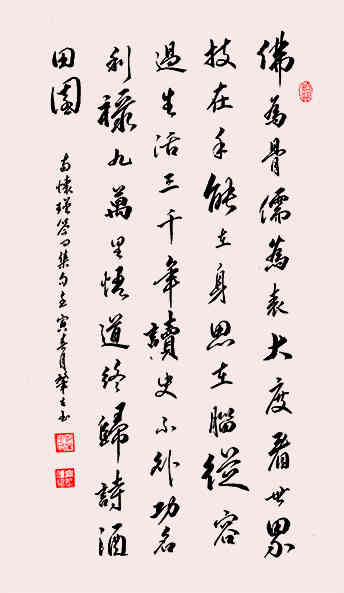 佛為骨儒為表大度看世界
技在手能在身思在腦從容
過生活三千年讀史不外功名
利祿九萬里悟道終歸詩酒
田園
南懷瑾集句壬寅春月书